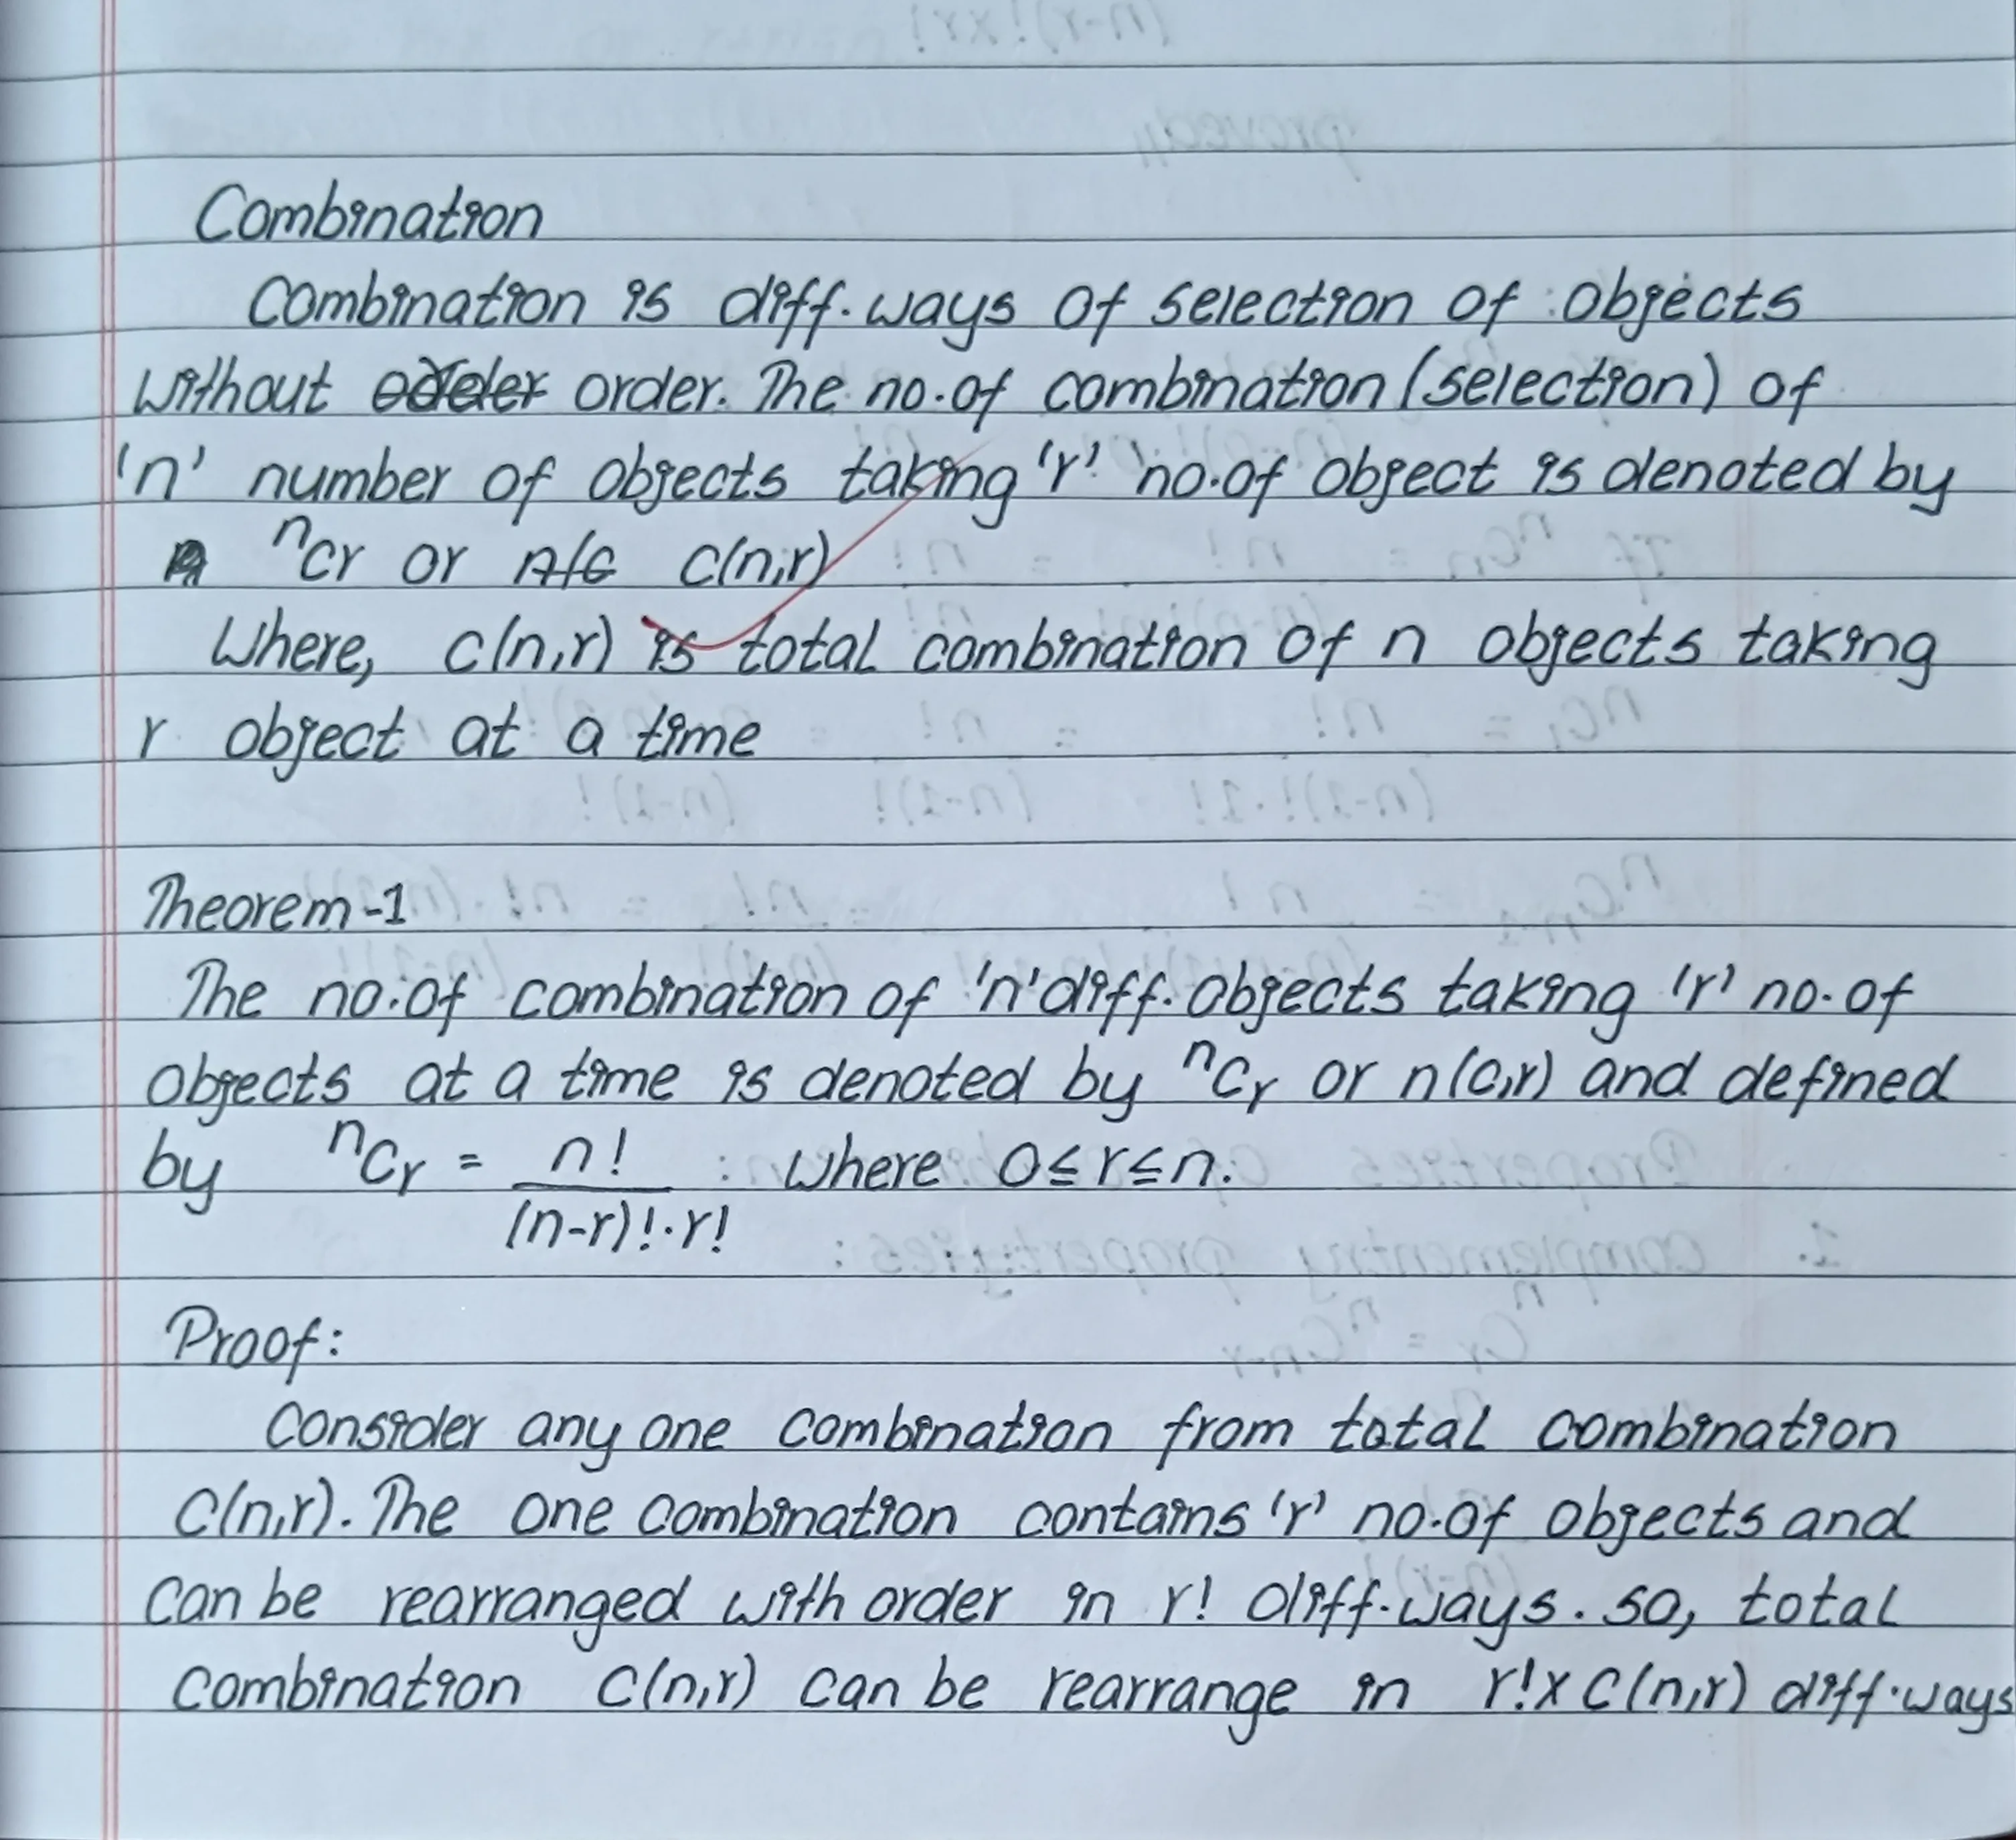 Combination
Combination is diff. ways of selection of objects
without order. The no. of combination (selection) of
'n' number of objects taking 'r' no. of object is denoted by
ⁿCr or C(n,r)
Where, C(n,r) is total combination of n objects taking
r object at a time
Theorem-1
The no. of combination of 'n' diff. objects taking 'r' no. of
objects at a time is denoted by ⁿCr or n(c,r) and defined
by ⁿCr = n! / (n-r)!·r! : where 0≤r≤n.
Proof:
Consider any one combination from total combination
C(n,r). The one combination contains 'r' no. of objects and
can be rearranged with order in r! diff. ways. so, total
combination C(n,r) can be rearrange in r!x C(n,r) diff. ways